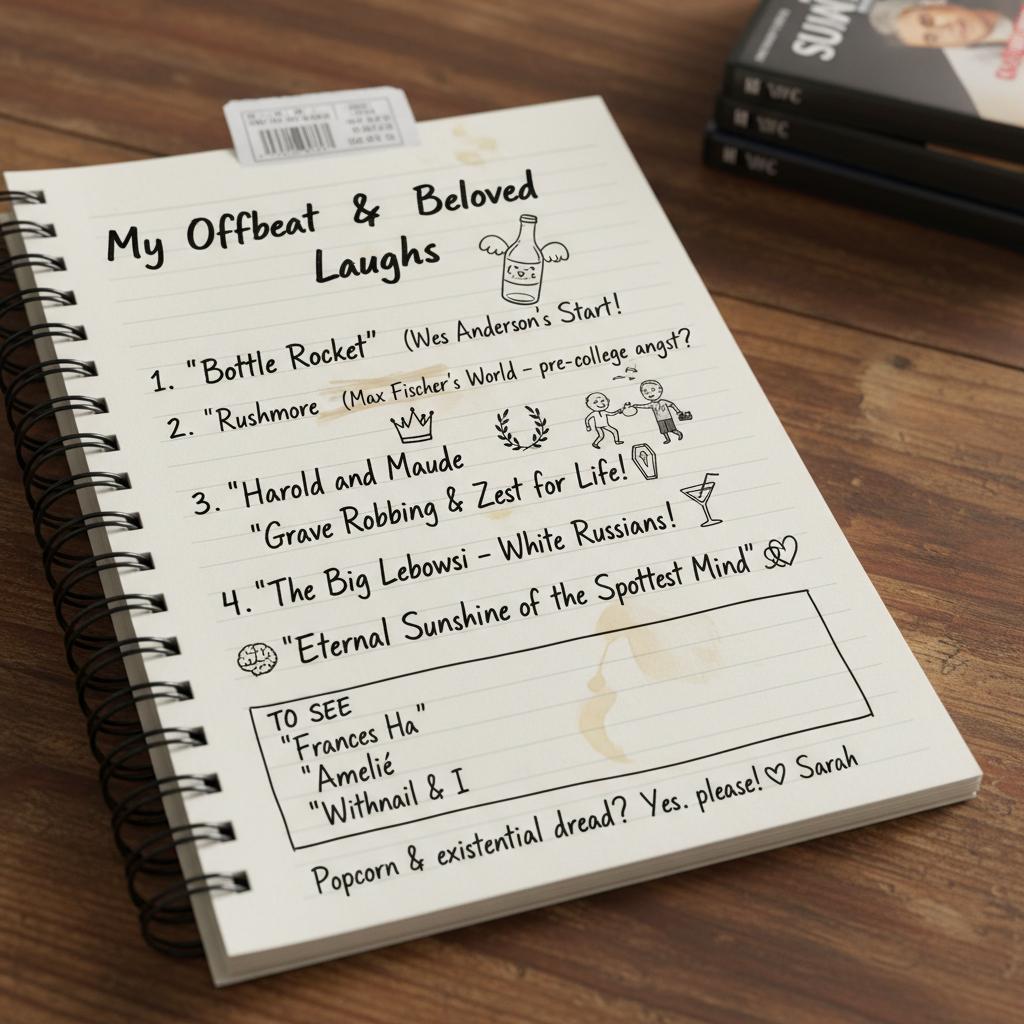 My Offbeat & Beloved
Laughs
1. "Bottle Rocket" (Wes Anderson's Start!
2. "Rushmore (Max Fischer's World – pre-college angst?
3. "Harold and Maude
"Grave Robbing & Zest for Life!
4. "The Big Lebowsi – White Russians!
"Eternal Sunshine of the Spottest Mind"
TO SEE
"Frances Ha"
"Amelié
"Withnail & I
Popcorn & existential dread? Yes. please! ♡ Sarah